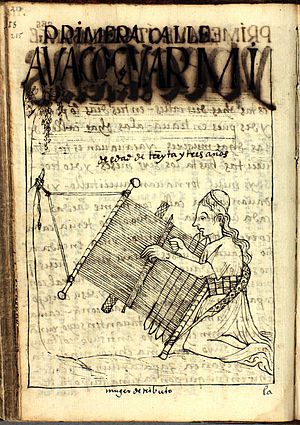 215
PRIMERA CALLE
AVACOCVARMI
de edad de treynta y tres años
muger de tributo
la